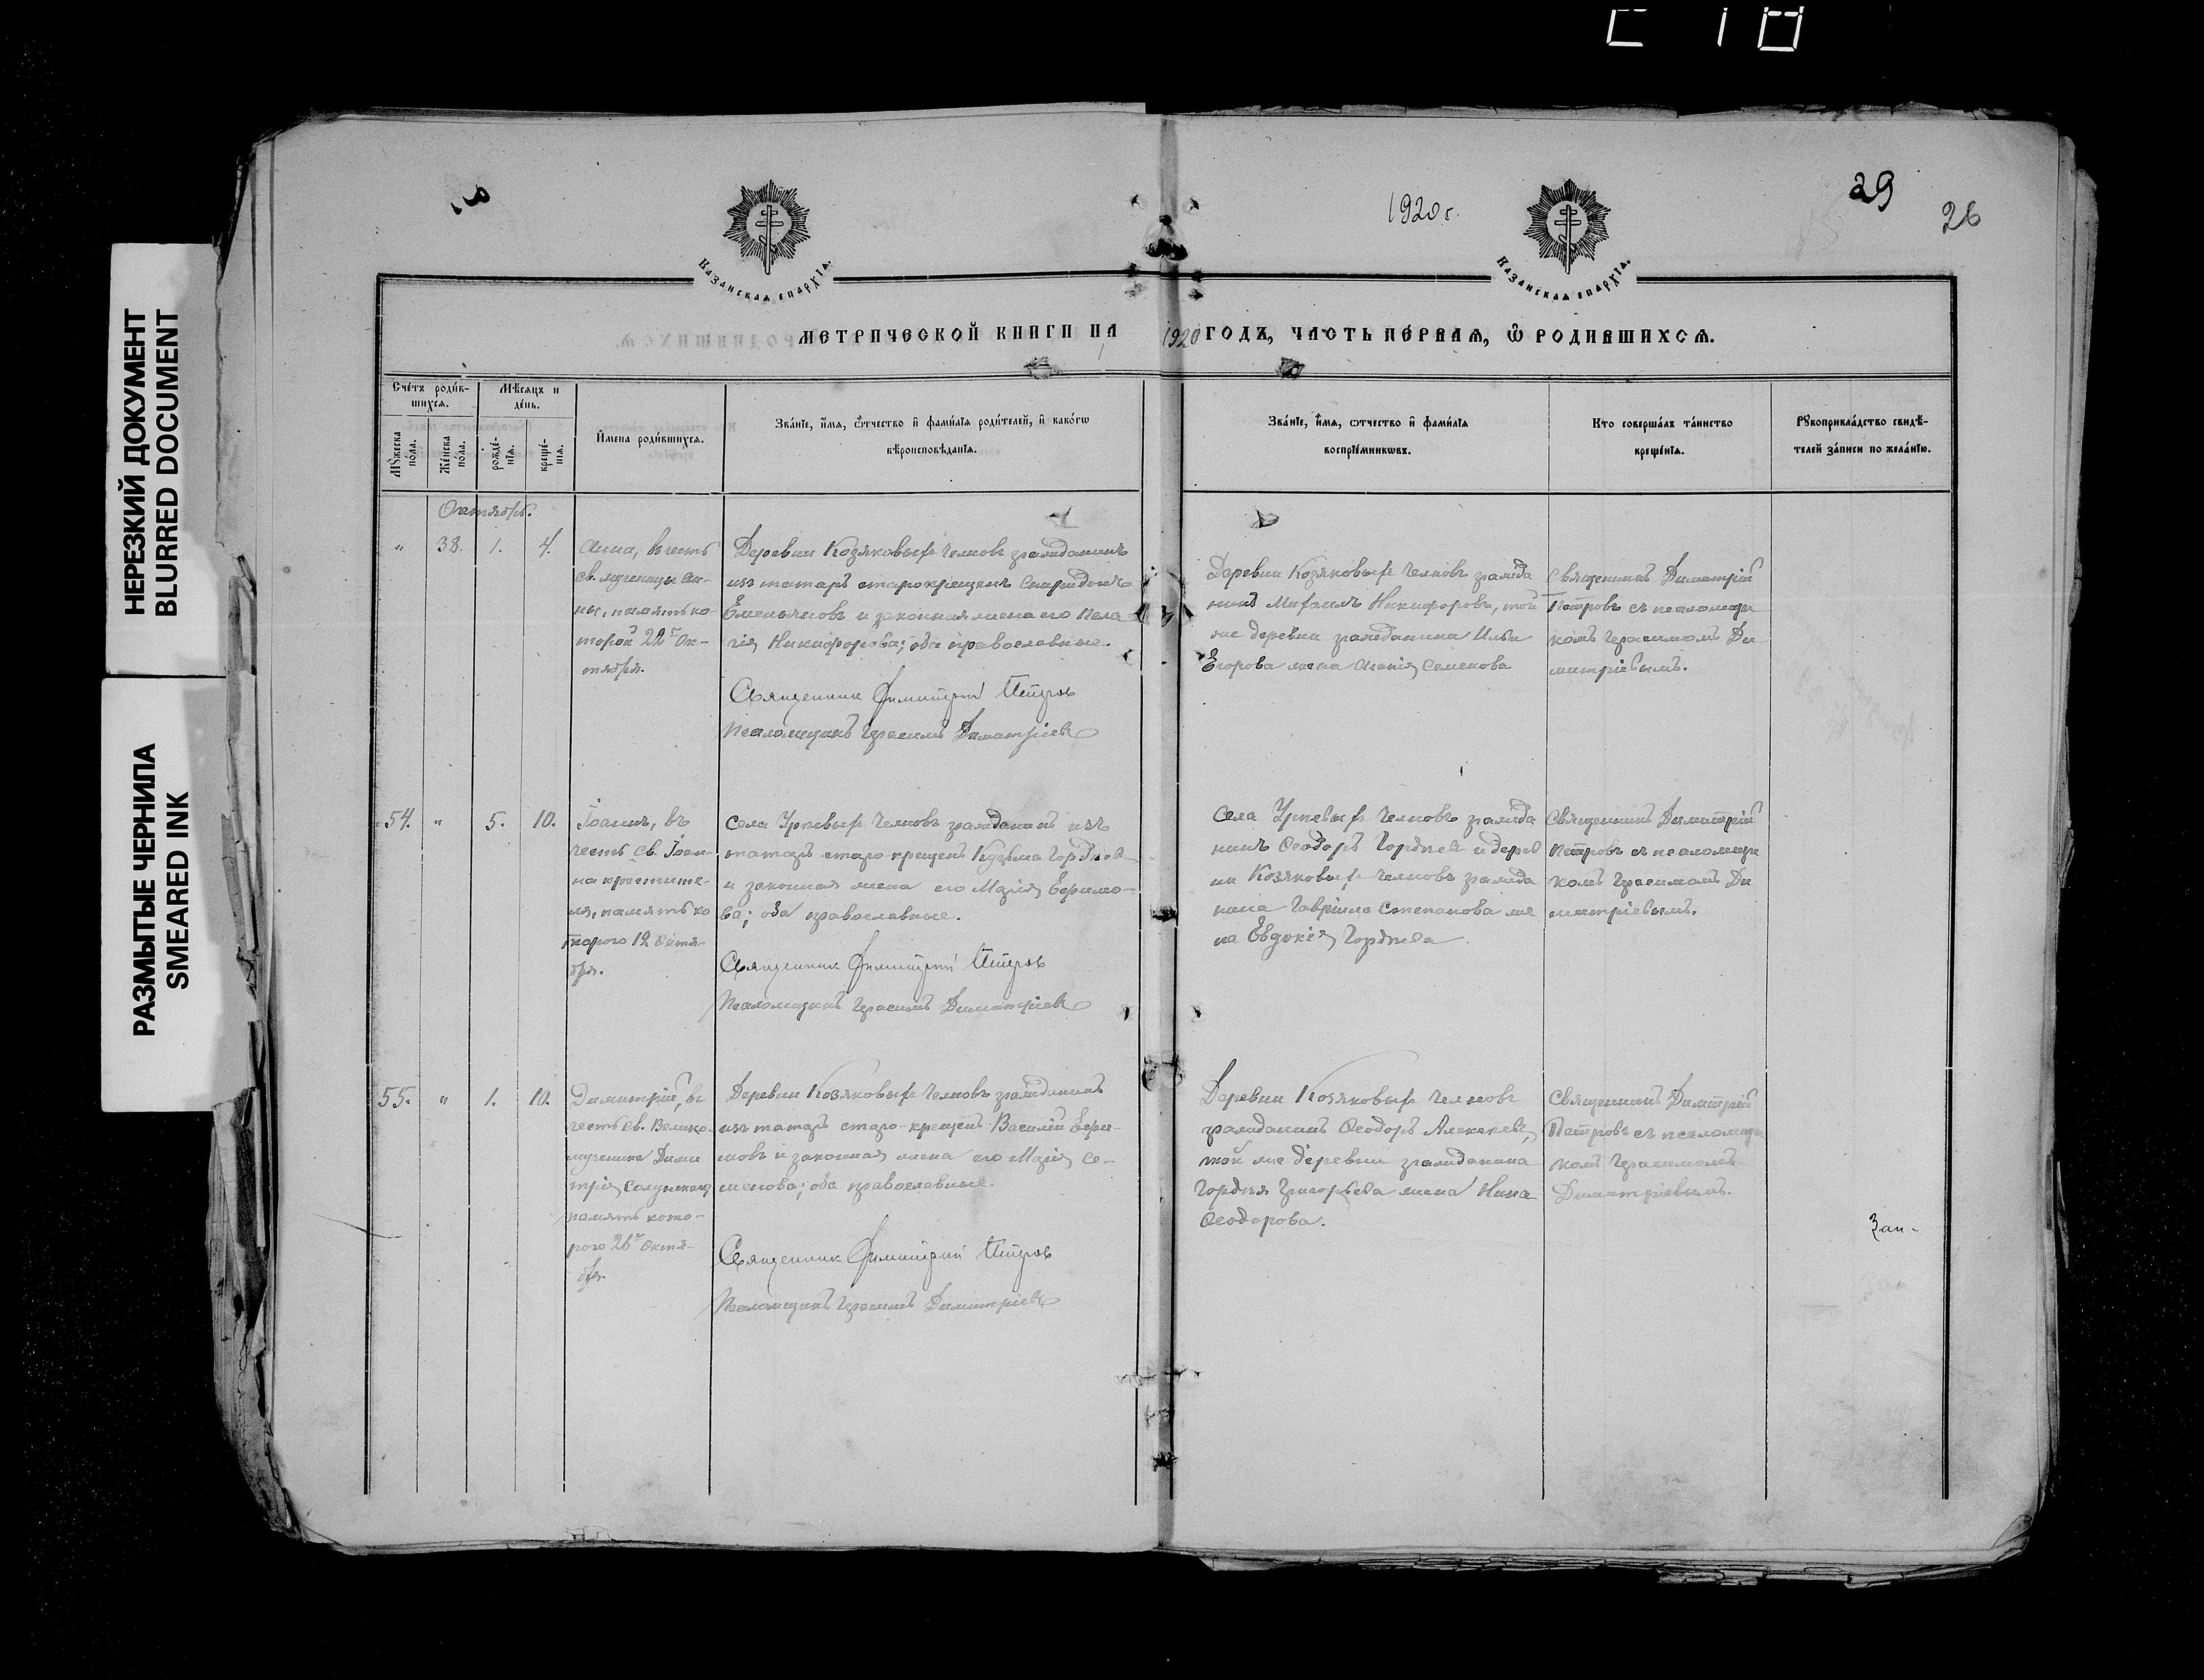 НЕРЕЗКИЙ ДОКУМЕНТ
BLURRED DOCUMENT
РАЗМЫТЫЕ ЧЕРНИЛА
SMEARED INK
1920 г.
29
26
КАЗАНСКАЯ ЕПАРХІЯ.
КАЗАНСКАЯ ЕПАРХІЯ.
МЕТРИЧЕСКОЙ КНИГИ НА 1920 ГОДЪ, ЧАСТЬ ПЕ́РВАЯ, Ѡ РОДИВШИХСЯ.
Сче́тъ роди́в-
шихся.
Му́жеска
по́ла.
Же́нска
по́ла.
Мѣсяцъ и
де́нь.
рожде́-
нія.
креще́-
нія.
И҆мена роди́вшихся.
Зва́ніе, и҆́мя, ѻ҆́тчество и҆ фами́лія роди́телей, и҆ како́гѡ
вѣроисповѣ́данія.
Зва́ніе, и҆́мя, ѻ҆тчество и҆ фами́лія
воспріе́мникѡвъ.
Кто соверша́лъ та́инство
креще́нія.
Рꙋкоприкла́дство свидѣ́-
телей за́писи по жела́нію.
Октябрь.
" 38. 1. 4.
Анна, въ честь
св. мученицы Ан-
ны, память ко-
торой 22го Ок-
тября.
Деревни Козяковыхъ Челновъ гражданинъ
изъ татаръ старокрещенъ Спиридонъ
Емельяновъ и законная жена его Пела
гія Никифорова; оба православные.
Священник Димитрий Петров
Псаломщикъ Герасимъ Димитріевъ
Деревни Козяковыхъ Челновъ гражда
нинъ Михаилъ Никифоровъ, той
же деревни гражданина Ильи
Егорова жена Ксенія Семенова
Священникъ Димитрій
Петровъ съ псаломщи
комъ Герасимомъ Ди
митріевымъ.
54. " 5. 10.
Іоаннъ, въ
честь св. Іоан-
на крестите-
ля, память ко
тораго 12 Октя-
бря.
Села Ураевыхъ Челновъ гражданинъ изъ
татаръ старо-крещенъ Кузьма Гордѣевъ
и законная жена его Марія Ефимо-
ва; оба православные.
Священник Димитрий Петров
Псаломщикъ Герасимъ Димитріевъ
Села Ураевыхъ Челновъ гражда
нинъ Ѳеодоръ Гордѣевъ и дерев
ни Козяковыхъ Челновъ гражда
нина Гавріила Степанова же
на Евдокія Гордѣева
Священникъ Димитрій
Петровъ съ псаломщи
комъ Герасимомъ Ди
митріевымъ.
55. " 1. 10.
Димитрій, въ
честь св. Велико-
мученика Дими
трія Солунскаго,
память кото-
рого 26го Октя-
бря.
Деревни Козяковыхъ Челновъ гражданинъ
изъ татаръ старо-крещенъ Василій Ефи-
мовъ и законная жена его Марія Се-
менова; оба православные.
Священник Димитрий Петров
Псаломщикъ Герасимъ Димитріевъ
Деревни Козяковыхъ Челновъ
гражданинъ Ѳеодоръ Алексѣевъ,
той же деревни гражданина
Гордѣя Григорьева жена Нина
Ѳеодорова.
Священникъ Димитрій
Петровъ съ псаломщи
комъ Герасимомъ
Димитріевымъ.